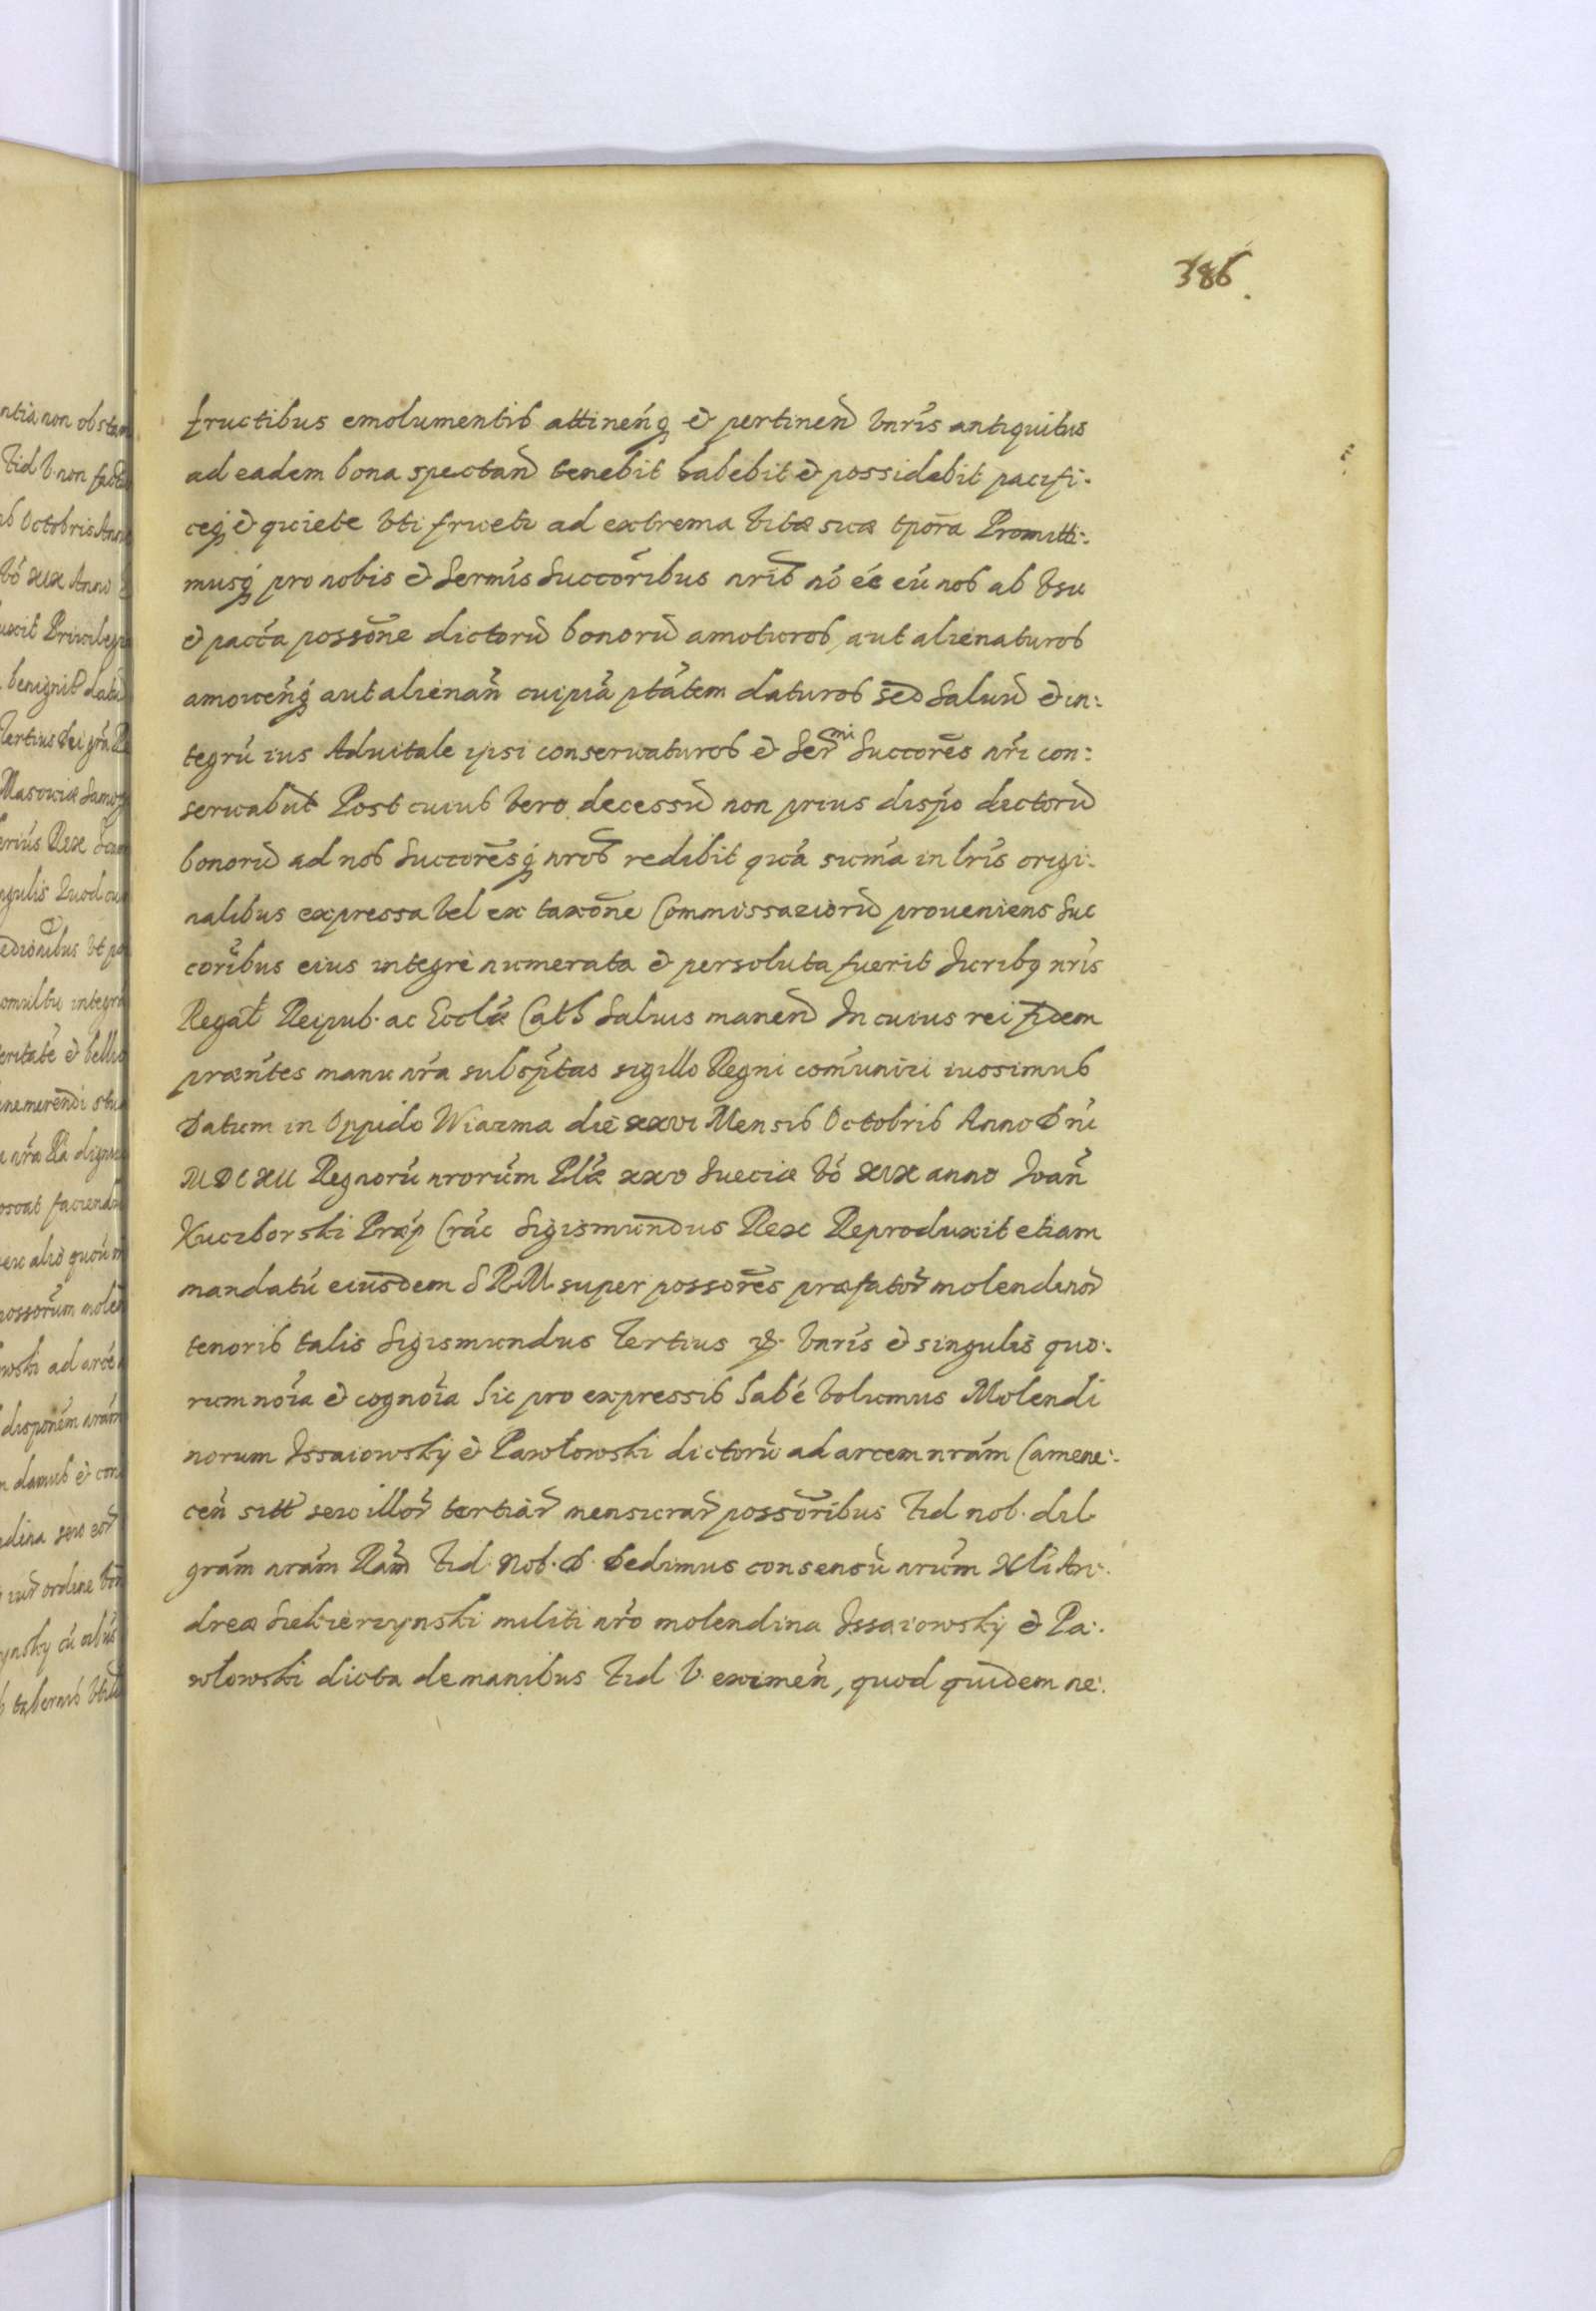 386.
fructibus emolumentis attineńq & pertineñ vnris antiquitus
ad eadem bona spectañ tenebit habebit & possidebit pacifi:
ceq & quiete vti fructu ad extrema vitæ suæ tpora Promitti:
musq pro nobis & Sermis Succoribus nris nó eé eú nos ab vsu
& pacca possone dictorũ bonorũ amoturos, aut alienaturos
amouenq aut alienañ cuipiã ptátem daturos sed Saluũ & in:
tegrú ius Aduitale ipsi conseruaturos & Ser͠mi Succores nri con:
seruabũt Post cuius vero decessũ non prius dispo dictorũ
bonorũ ad nos Succoresq nros redibit quá suḿa in lris origi:
nalibus expressa vel ex taxone Commissariorũ proueniens Suc
coribus eius integré numerata & persoluta fuerit Juribq nris
Regal Reipub. ac Eccliæ Cath Saluis maneñ In cuius rei fidem
præntes manu nra subsptas sigillo Regni comuniri iussimus
Datum in Oppido Wiazma die xxvi Mensis Octobris Anno Dni
MDCXII Regnorú nrorúm Plæ xxv Sueciæ vó XIX anno Joañ
Kuczborski Præp Crac Sigismundus Rex Reproduxit etiam
mandatú eiusdem S R M super possores præfator molendinor
tenoris talis Sigismundus Tertius &. vnris & singulis quo:
rum noia & cognoia hic pro expressis habé volumus Molendi
norum Issaiowsky & Pawłowski dictorú ad arcem nrám Camene:
ceñ sitt seu illor tertiar mensurar possoribus Fid nob. dil
grám nrám Rám Fid. Nob. D. Dedimus consensú nrum Nli An:
dreæ Siekierzynski militi nro molendina Issaiowsky & Pa:
włowski dicta de manibus Fid V. eximeñ, quod quidem ne: